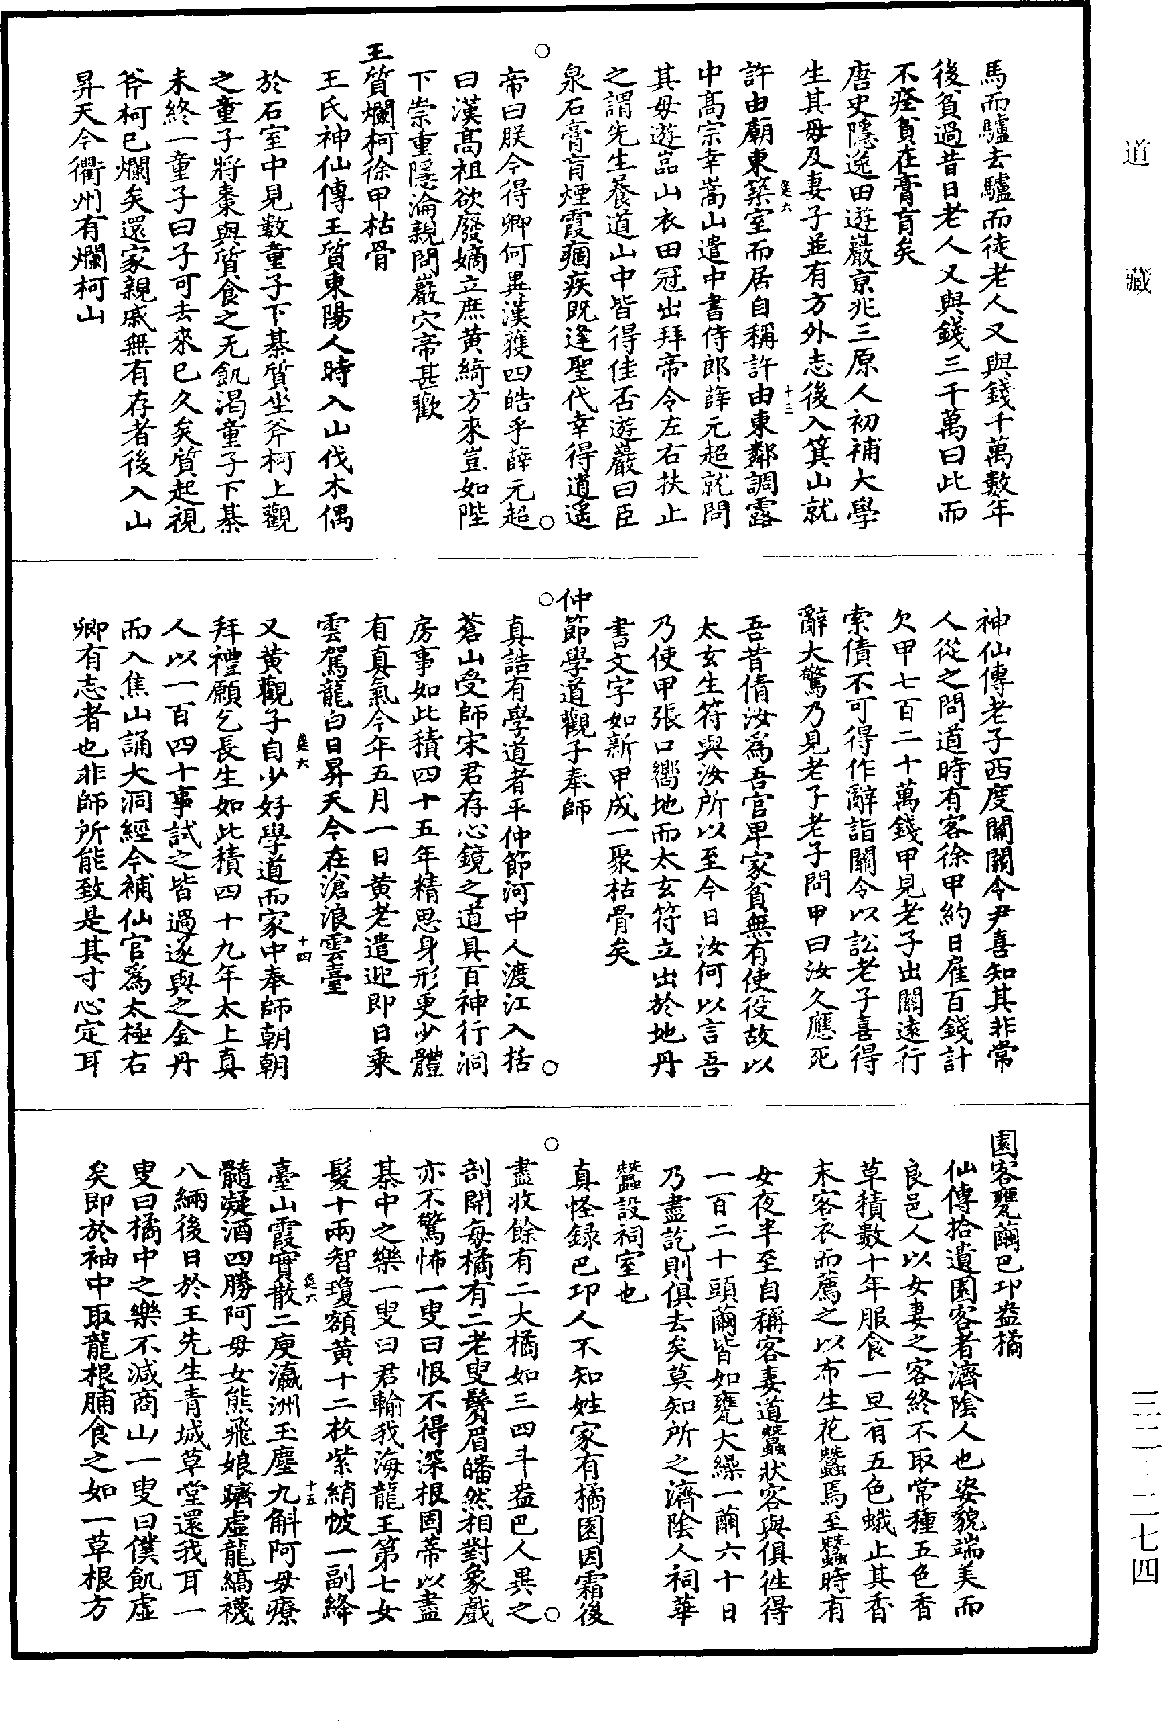 道藏
三二·二七四
馬而驢去驢而徒老人又與錢千萬數年
後負過昔日老人又與錢三千萬曰此而
不痊貧在膏肓矣
唐史隱逸田遊巖京兆三原人初補大學
生其母及妻子並有方外志後入箕山就
許由廟東築室而居自稱許由東鄰調露
中高宗幸嵩山遣中書侍郎薛元超就問
其母遊嵓山衣田冠出拜帝令左右扶止
之謂先生養道山中皆得佳否遊巖曰臣
泉石膏肓煙霞痼疾既逢聖代幸得逍遥
帝曰朕今得卿何異漢獲四皓乎薛元超
曰漢高祖欲廢嫡立庶黄綺方來豈如陛
下崇重隱淪親問巖穴帝甚歡
王質爛柯徐甲枯骨
王氏神仙傳王質東陽人時入山伐木偶
於石室中見數童子下棊質坐斧柯上觀
之童子將棗與質食之无飢渴童子下棊
未終一童子曰子可去來已久矣質起視
斧柯已爛矣還家親戚無有存者後入山
昇天今衢州有爛柯山
神仙傳老子西度關關令尹喜知其非常
人從之問道時有客徐甲約日雇百錢計
欠甲七百二十萬錢甲見老子出關遠行
索債不可得作辭詣關令以訟老子喜得
辭大驚乃見老子老子問甲曰汝久應死
吾昔倩汝爲吾官卑家貧無有使役故以
太玄生符與汝所以至今日汝何以言吾
乃使甲張口嚮地而太玄符立出於地丹
書文字如新甲成一聚枯骨矣
仲節學道觀子奉師
真誥有學道者平仲節河中人渡江入括
蒼山受師宋君存心鏡之道具百神行洞
房事如此積四十五年精思身形更少體
有真氣今年五月一日黄老遣迎即日乗
雲駕龍白日昇天今在滄浪雲臺
又黄觀子自少好學道而家中奉師朝朝
拜禮願乞長生如此積四十九年太上真
人以一百四十事試之皆過遂與之金丹
而入焦山誦大洞經今補仙官爲太極右
卿有志者也非師所能致是其寸心定耳
園客甕繭巴邛盎橘
仙傳拾遺園客者濟陰人也姿貌端美而
良邑人以女妻之客終不取常種五色香
草積數十年服食一旦有五色蛾止其香
末客衣而薦之以布生花蠶焉至蠶時有
女夜半至自稱客妻道蠶狀客與俱徃得
一百二十頭繭皆如甕大繰一繭六十日
乃盡訖則俱去矣莫知所之濟陰人祠華
蠶設祠室也
真怪録巴邛人不知姓家有橘園因霜後
盡收餘有二大橘如三四斗盎巴人異之
剖開每橘有二老叟鬢眉皤然相對象戲
亦不驚怖一叟曰恨不得深根固蒂以盡
棊中之樂一叟曰君輸我海龍王第七女
髮十兩智瓊額黄十二枚紫綃帔一副絳
臺山霞實散二庾瀛洲玉塵九斛阿母療
髓凝酒四勝阿母女熊飛娘躋虚龍縞襪
八緉後日於王先生青城草堂還我耳一
叟曰橘中之樂不減商山一叟曰僕飢虚
矣即於袖中取龍根脯食之如一草根方